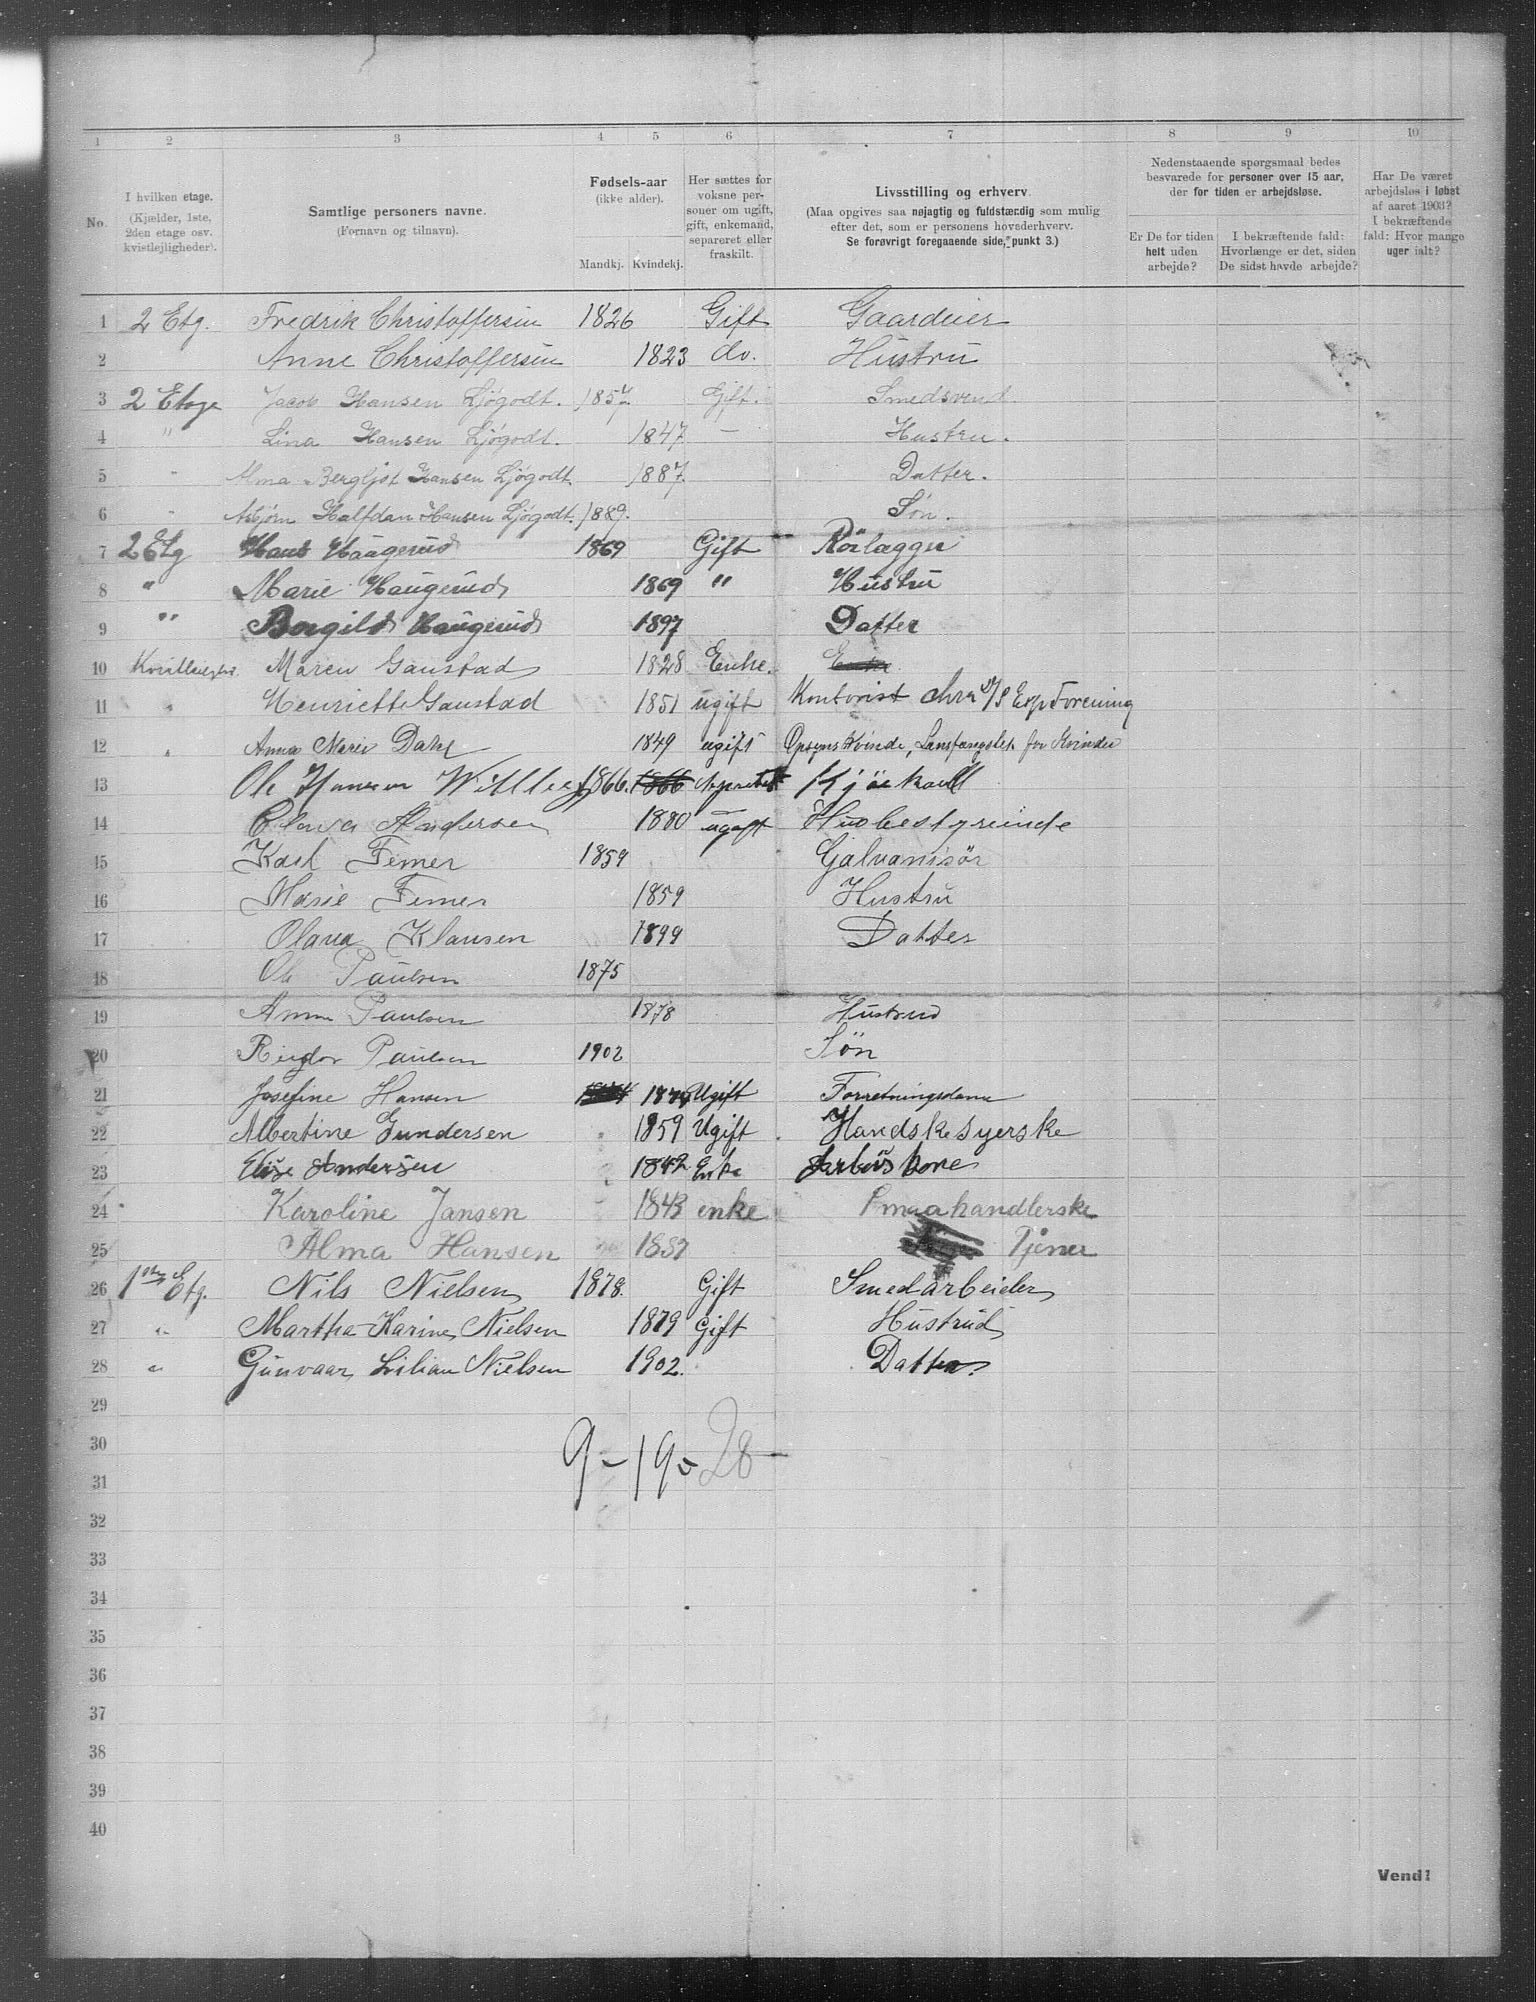 1 2 3 4 5 6 7 8 9 10
No.
I hvilken etage. (Kjælder, 1ste, 2den etage osv. kvistlejligheder).
Samtlige personers navne. (Fornavn og tilnavn).
Fødsels-aar (ikke alder). Mandkj. Kvindekj.
Her sættes for voksne personer om ugift, gift, enkemand, separeret eller fraskilt.
Livsstilling og erhverv. (Maa opgives saa nøjagtig og fuldstærdig som mulig efter det, som er personens hovederhverv. Se forøvrigt foregaaende side, punkt 3.)
Nedenstaaende spørgsmaal bedes besvarede for personer over 15 aar, der for tiden er arbejdsløse.
Er De for tiden helt uden arbejde?
I bekræftende fald: Hvorlænge er det, siden De sidst havde arbejde?
Har De været arbejdsløs i løbet af aaret 1903? I bekræftende fald: Hvor mange uger ialt?
1 2 Etg. Fredrik Christoffersen 1826 Gift Gaardeier
2 Anne Christoffersen 1823 do. Hustru
3 2 Etage Jacob Hansen Ljøgodt. 1857 Gift. Smedsvend
4 " Lina Hansen Ljøgodt. 1847 – Hustru.
5 " Alma Bergljot Hansen Ljøgodt 1887. Datter.
6 " Asbjørn Halfdan Hansen Ljøgodt. 1889. Søn.
7 2 Etg Hans Haugerud 1869 Gift Rörlægger
8 " Marie Haugerud 1869 " Hustru
9 " Borgild Haugerud 1897 Datter
10 Maren Gaustad 1828 Enke.
11 " Henriette Gaustad 1851 ugift Kontorist Forening
12 " Anna Marie Dahl 1849 ugift Opsynskvinde, for Kvinder
13 Ole Hansen 1866.
14 Andersen 1880 ugift Husbestyrinde
15 Karl Femer 1859 Galvanisör
16 Marie Femer 1859 Hustru
17 Olava Klausen 1899 Datter
18 Ole Paulsen 1875
19 Anna Paulsen 1878 Hustrud
20 Reidor Paulsen 1902 Sön
21 Josefine Hansen Ugift Forretningsdame
22 Albertine Gundersen 1859 Ugift Handskesyerske
23 Elise Andersen 1842 Enke Arbeiskone
24 Karoline Jansen 1843 enke Smaahandlerske
25 Alma Hansen 1887 Tjener
26 1ste Etg. Nils Nielsen 1878. Gift Smedarbeider
27 " Martha Karine Nielsen 1879 Gift Hustrud
28 " Gunvaar Lilian Nielsen 1902. Datter.
29
30 9 – 19 – 28
31
32
33
34
35
36
37
38
39
40
Vend!